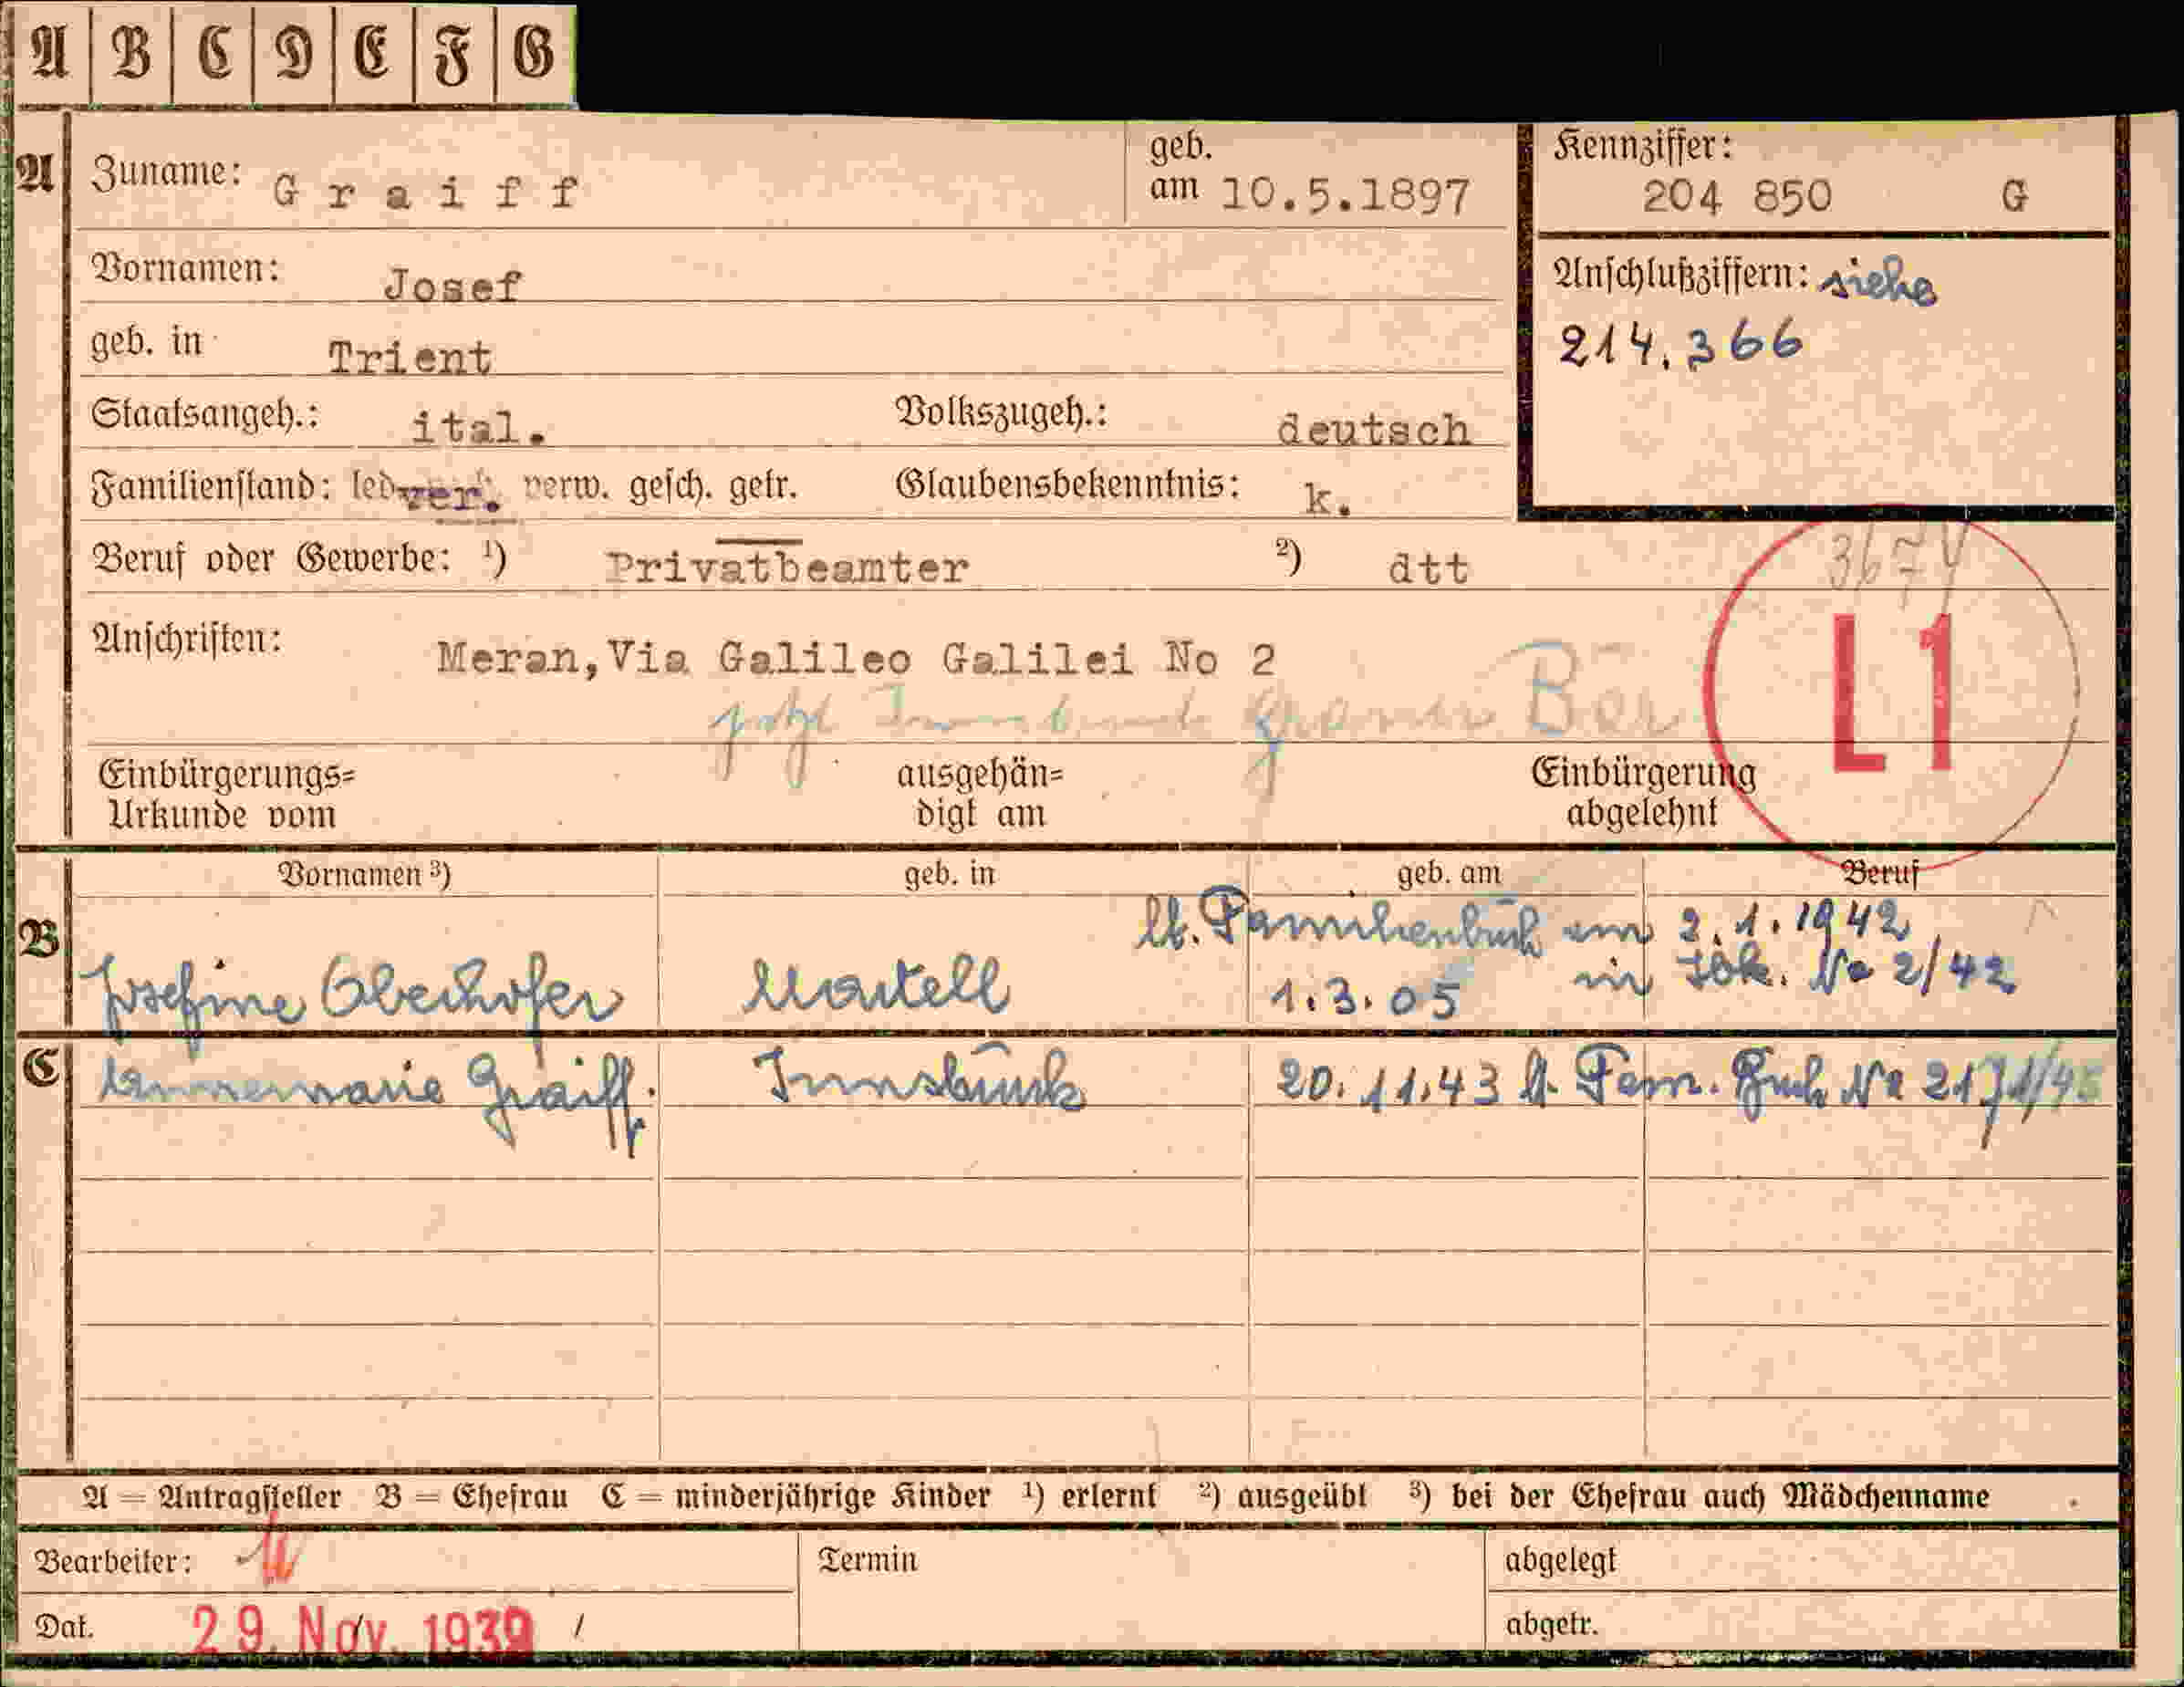 A B C D E F G
A Zuname: Graiff geb. am 10.5.1897 Kennziffer: 204 850 G
Vornamen: Josef Anschlußziffern: siehe
geb. in Trient 214.366
Staatsangeh.: ital. Volkszugeh.: deutsch
Familienstand: led. ver. verw. gesch. getr. Glaubensbekenntnis: k.
Beruf oder Gewerbe: ¹) Privatbeamter ²) dtt 3674
Anschriften: Meran, Via Galileo Galilei No 2 L1
jetzt Innsbruck grauer Bär
Einbürgerungs= ausgehän= Einbürgerung
Urkunde vom digt am abgelehnt
Vornamen ³) geb. in geb. am Beruf
B lt. Familienbuch am 2.1.1942
Josefine Oberhofer Martell 1.3.05 in Ibk. No 2/42
C Annemarie Graiff. Innsbruck 20.11.43 lt. Fam. Buch No
A = Antragsteller B = Ehefrau C = minderjährige Kinder ¹) erlernt ²) ausgeübt ³) bei der Ehefrau auch Mädchenname
Bearbeiter: Termin abgelegt
Dat. 29. Nov. 1939 / abgetr.